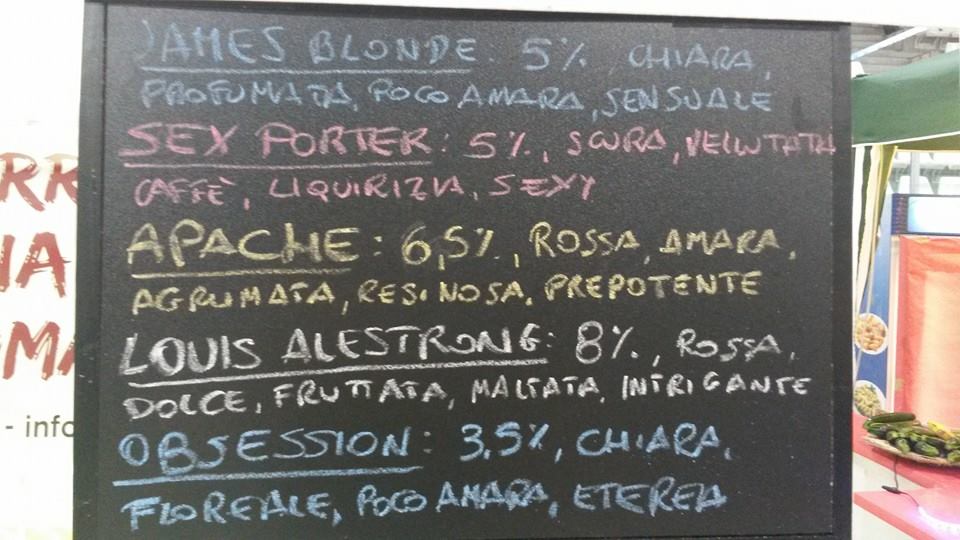 JAMES BLONDE: 5%, CHIARA,
PROFUMATA, POCO AMARA, SENSUALE
SEX PORTER: 5%, SCURA, VELLUTATA
CAFFÈ, LIQUIRIZIA, SEXY
APACHE: 6,5%, ROSSA, AMARA,
AGRUMATA, RESINOSA, PREPOTENTE
LOUIS ALESTRONG: 8%, ROSSA,
DOLCE, FRUTTATA, MALTATA, INTRIGANTE
OBSESSION: 3,5%, CHIARA,
FLOREALE, POCO AMARA, ETEREA
- info